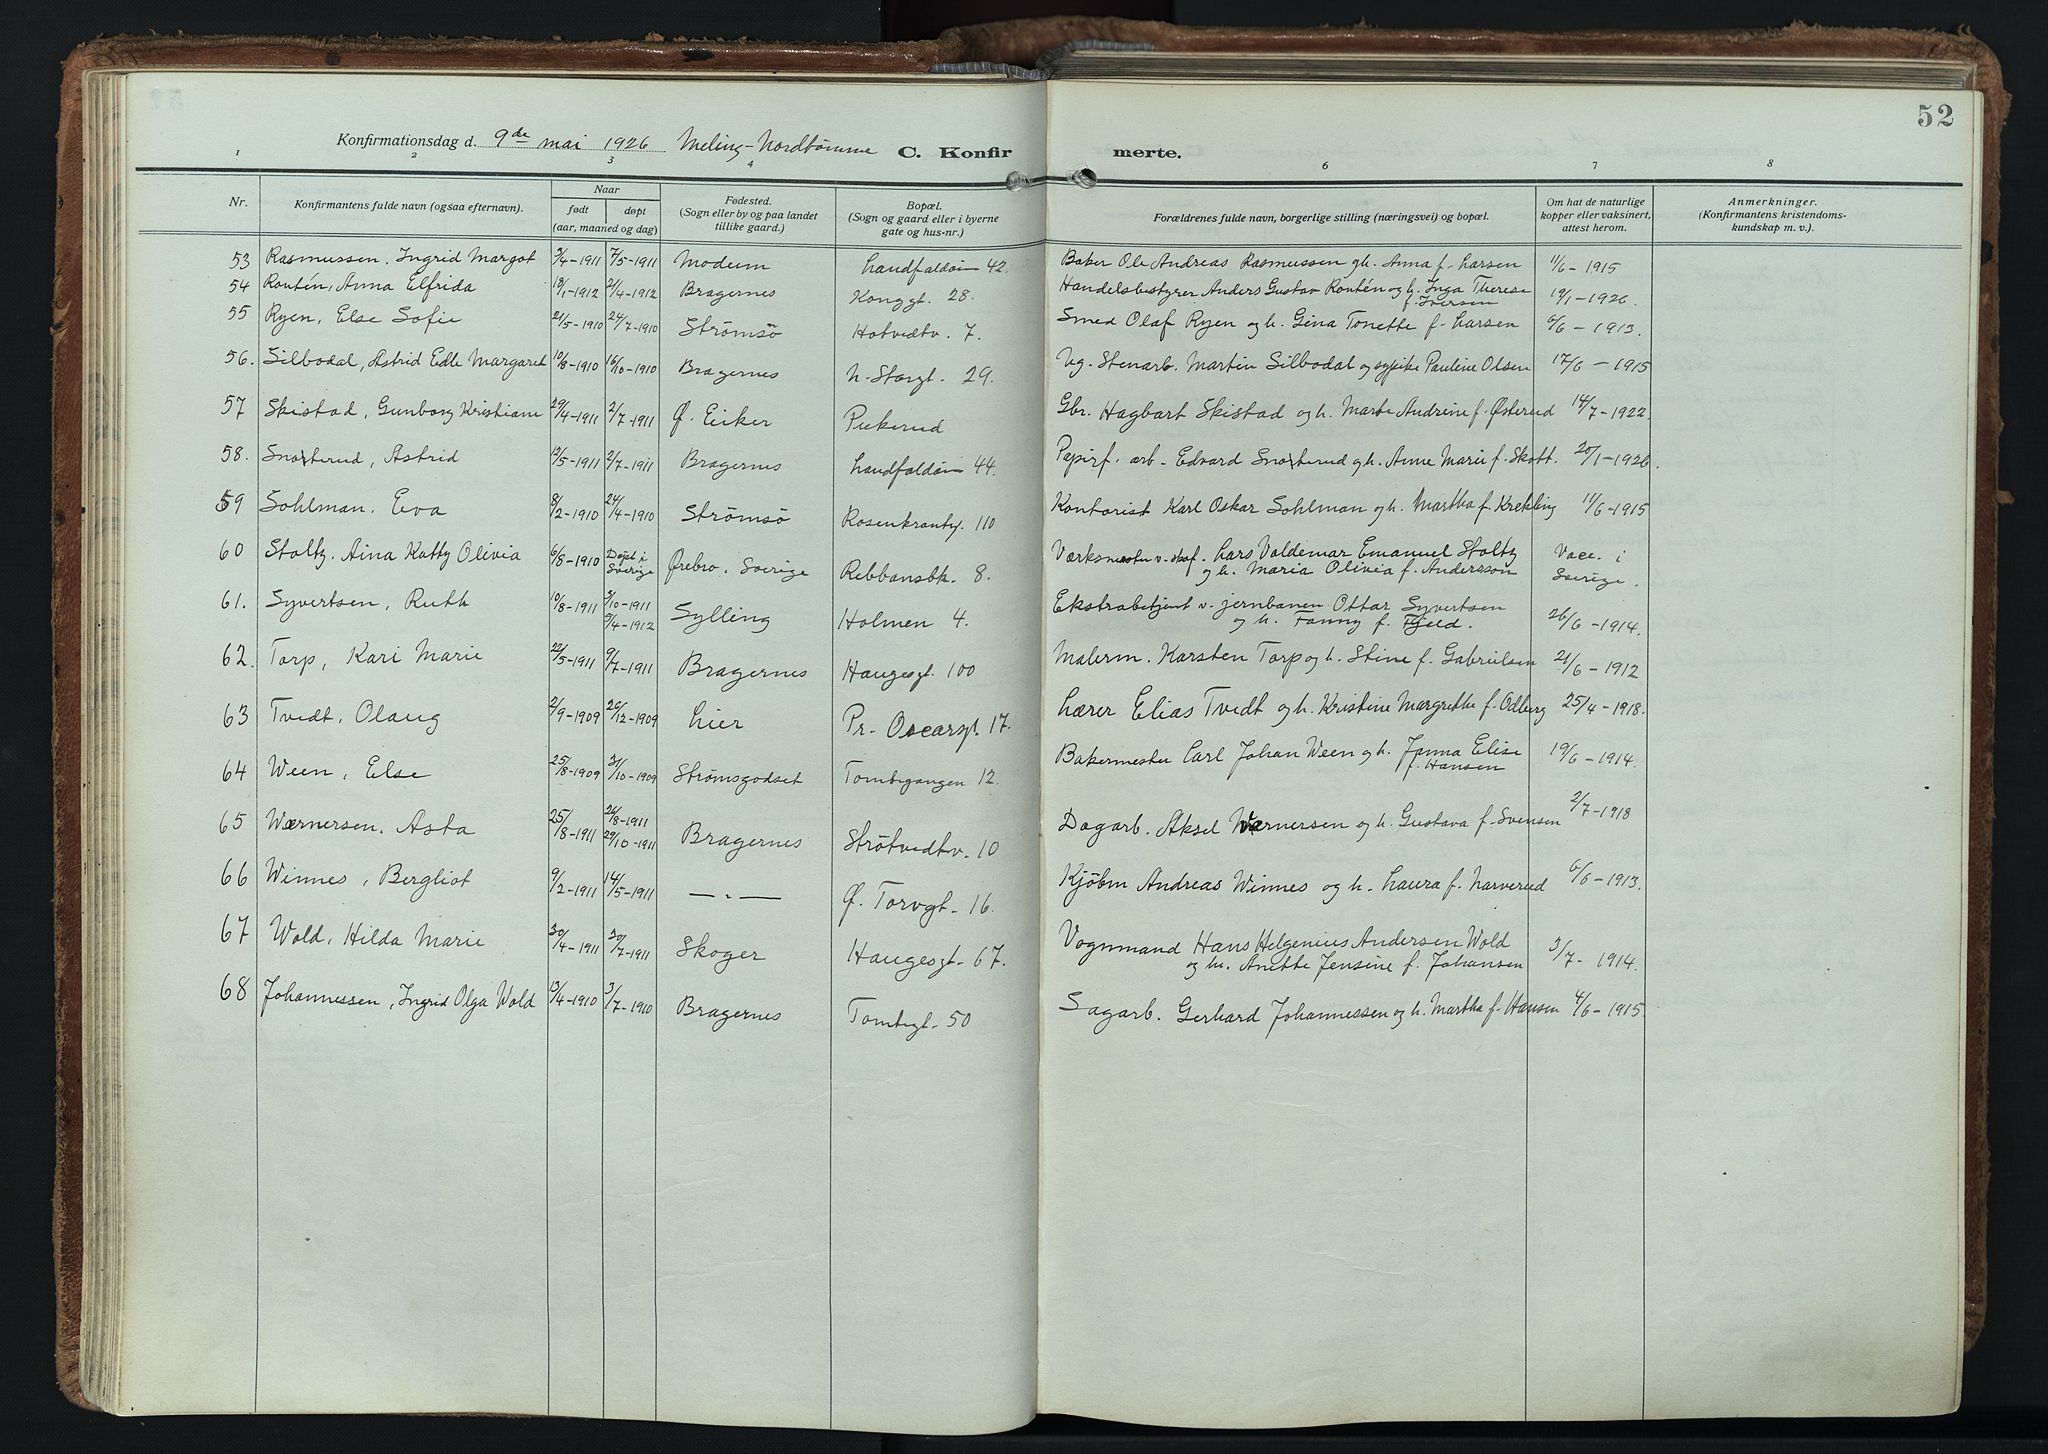 52
Konfirmationsdag d. 9de mai 1926 Meling-Nordtømme C. Konfirmerte.
1 2 3 4 6 7 8
Nr. Konfirmantens fulde navn (ogsaa efternavn). Naar født døpt (aar, maaned og dag) Fødested. (Sogn eller by og paa landet tillike gaard.) Bopæl. (Sogn og gaard eller i byerne gate og hus-nr.) Forældrenes fulde navn, borgerlige stilling (næringsvei) og bopæl. Om hat de naturlige kopper eller vaksinert, attest herom. Anmerkninger. (Konfirmantens kristendomskundskap m. v.).
53 Rasmussen, Ingrid Margot 3/4-1911 7/5-1911 Modum Landfaldøin 42. Baker Ole Andreas Rasmussen og h. Anna f. Larsen 11/6-1915
54 Rontén, Anna Elfrida 18/1-1912 2/4-1912 Bragernes Konggt. 28. Handelsbestyrer Anders Gustav Rontén og h. Inga Therese f. Iversen 19/1-1926.
55 Ryen, Else Sofie 21/5-1910 24/7-1910 Strømsø Hotvedtv. 7. Smed Olaf Ryen og h. Gina Tonette f. Larsen 6/6-1913.
56. Silbodal, Astrid Edle Margaret 10/8-1910 16/10-1910 Bragernes N. Storgt. 29. Ug. Stenarb. Martin Silbodal og sypike Pauline Olsen 17/6-1915
57 Skistad, Gunborg Kristiane 29/4-1911 2/7-1911 Ø. Eiker Pukerud Gbr. Hagbart Skistad og h. Marte Andrine f. Østerud 14/7-1922.
58. Snorterud, Astrid 12/5-1911 2/7-1911 Bragernes Landfaldøin 44. Papirf. arb. Edvard Snorterud og h. Anne Marie f. Skott. 20/1-1926.
59 Sohlman, Eva 8/2-1910 24/4-1910 Strømsø Rosenkrantzg. 110 Kontorist Karl Oskar Sohlman og h. Martha f. Krekling 11/6-1915
60 Stoltz, Aina Katty Olivia 6/8-1910 Døpt i Sverige Ørebro, Sverige Ribbansbk. 8. Værksmester v. skof. Lars Valdemar Emanuel Stoltz og h. Maria Olivia f. Andersson Vacc. i Sverige.
61. Syvertsen, Ruth 10/8-1911 3/10-1911 3/4-1912 Sylling Holmen 4. Ekstrabetjent v. jernbanen Ottar Syvertsen og h. Fanny f. Fjeld. 26/6-1914.
62. Torp, Kari Marie 22/5-1911 9/7-1911 Bragernes Haugesgt. 100 Malerm. Karsten Torp og h. Stine f. Gabrielsen 21/6-1912
63 Tvedt, Olaug 2/9-1909 26/12-1909 Lier Pr. Oscarsgt. 17. Lærer Elias Tvedt og h. Kristine Margrethe f. Odberg 25/4-1918.
64 Ween, Else 25/8-1909 31/10-1909 Strømsgodset Tomtegangen 12. Bakermester Carl Johan Ween og h. Janna Elise f. Hansen 19/6-1914.
65 Wærnersen, Asta 25/8-1911 26/8-1911 29/10-1911 Bragernes Strøtvedtv. 10 Dagarb. Aksel Wærnersen og h. Gustava f. Svensen 2/7-1918
66 Winnes, Bergliot 9/2-1911 14/5-1911 — " — Ø. Torvgt. 16. Kjøbm Andreas Winnes og h. Laura f. Narverud 6/6-1913.
67 Wold, Hilda Marie 30/4-1911 30/7-1911 Skoger Haugesgt. 67. Vognmand Hans Helgenius Andersen Wold og h. Anette Jensine f. Johansen 3/7-1914.
68 Johannessen, Ingrid Olga Wold 13/4-1910 3/7-1910 Bragernes Tomtegt. 50 Sagarb. Gerhard Johannessen og h. Martha f. Hansen 4/6-1915.